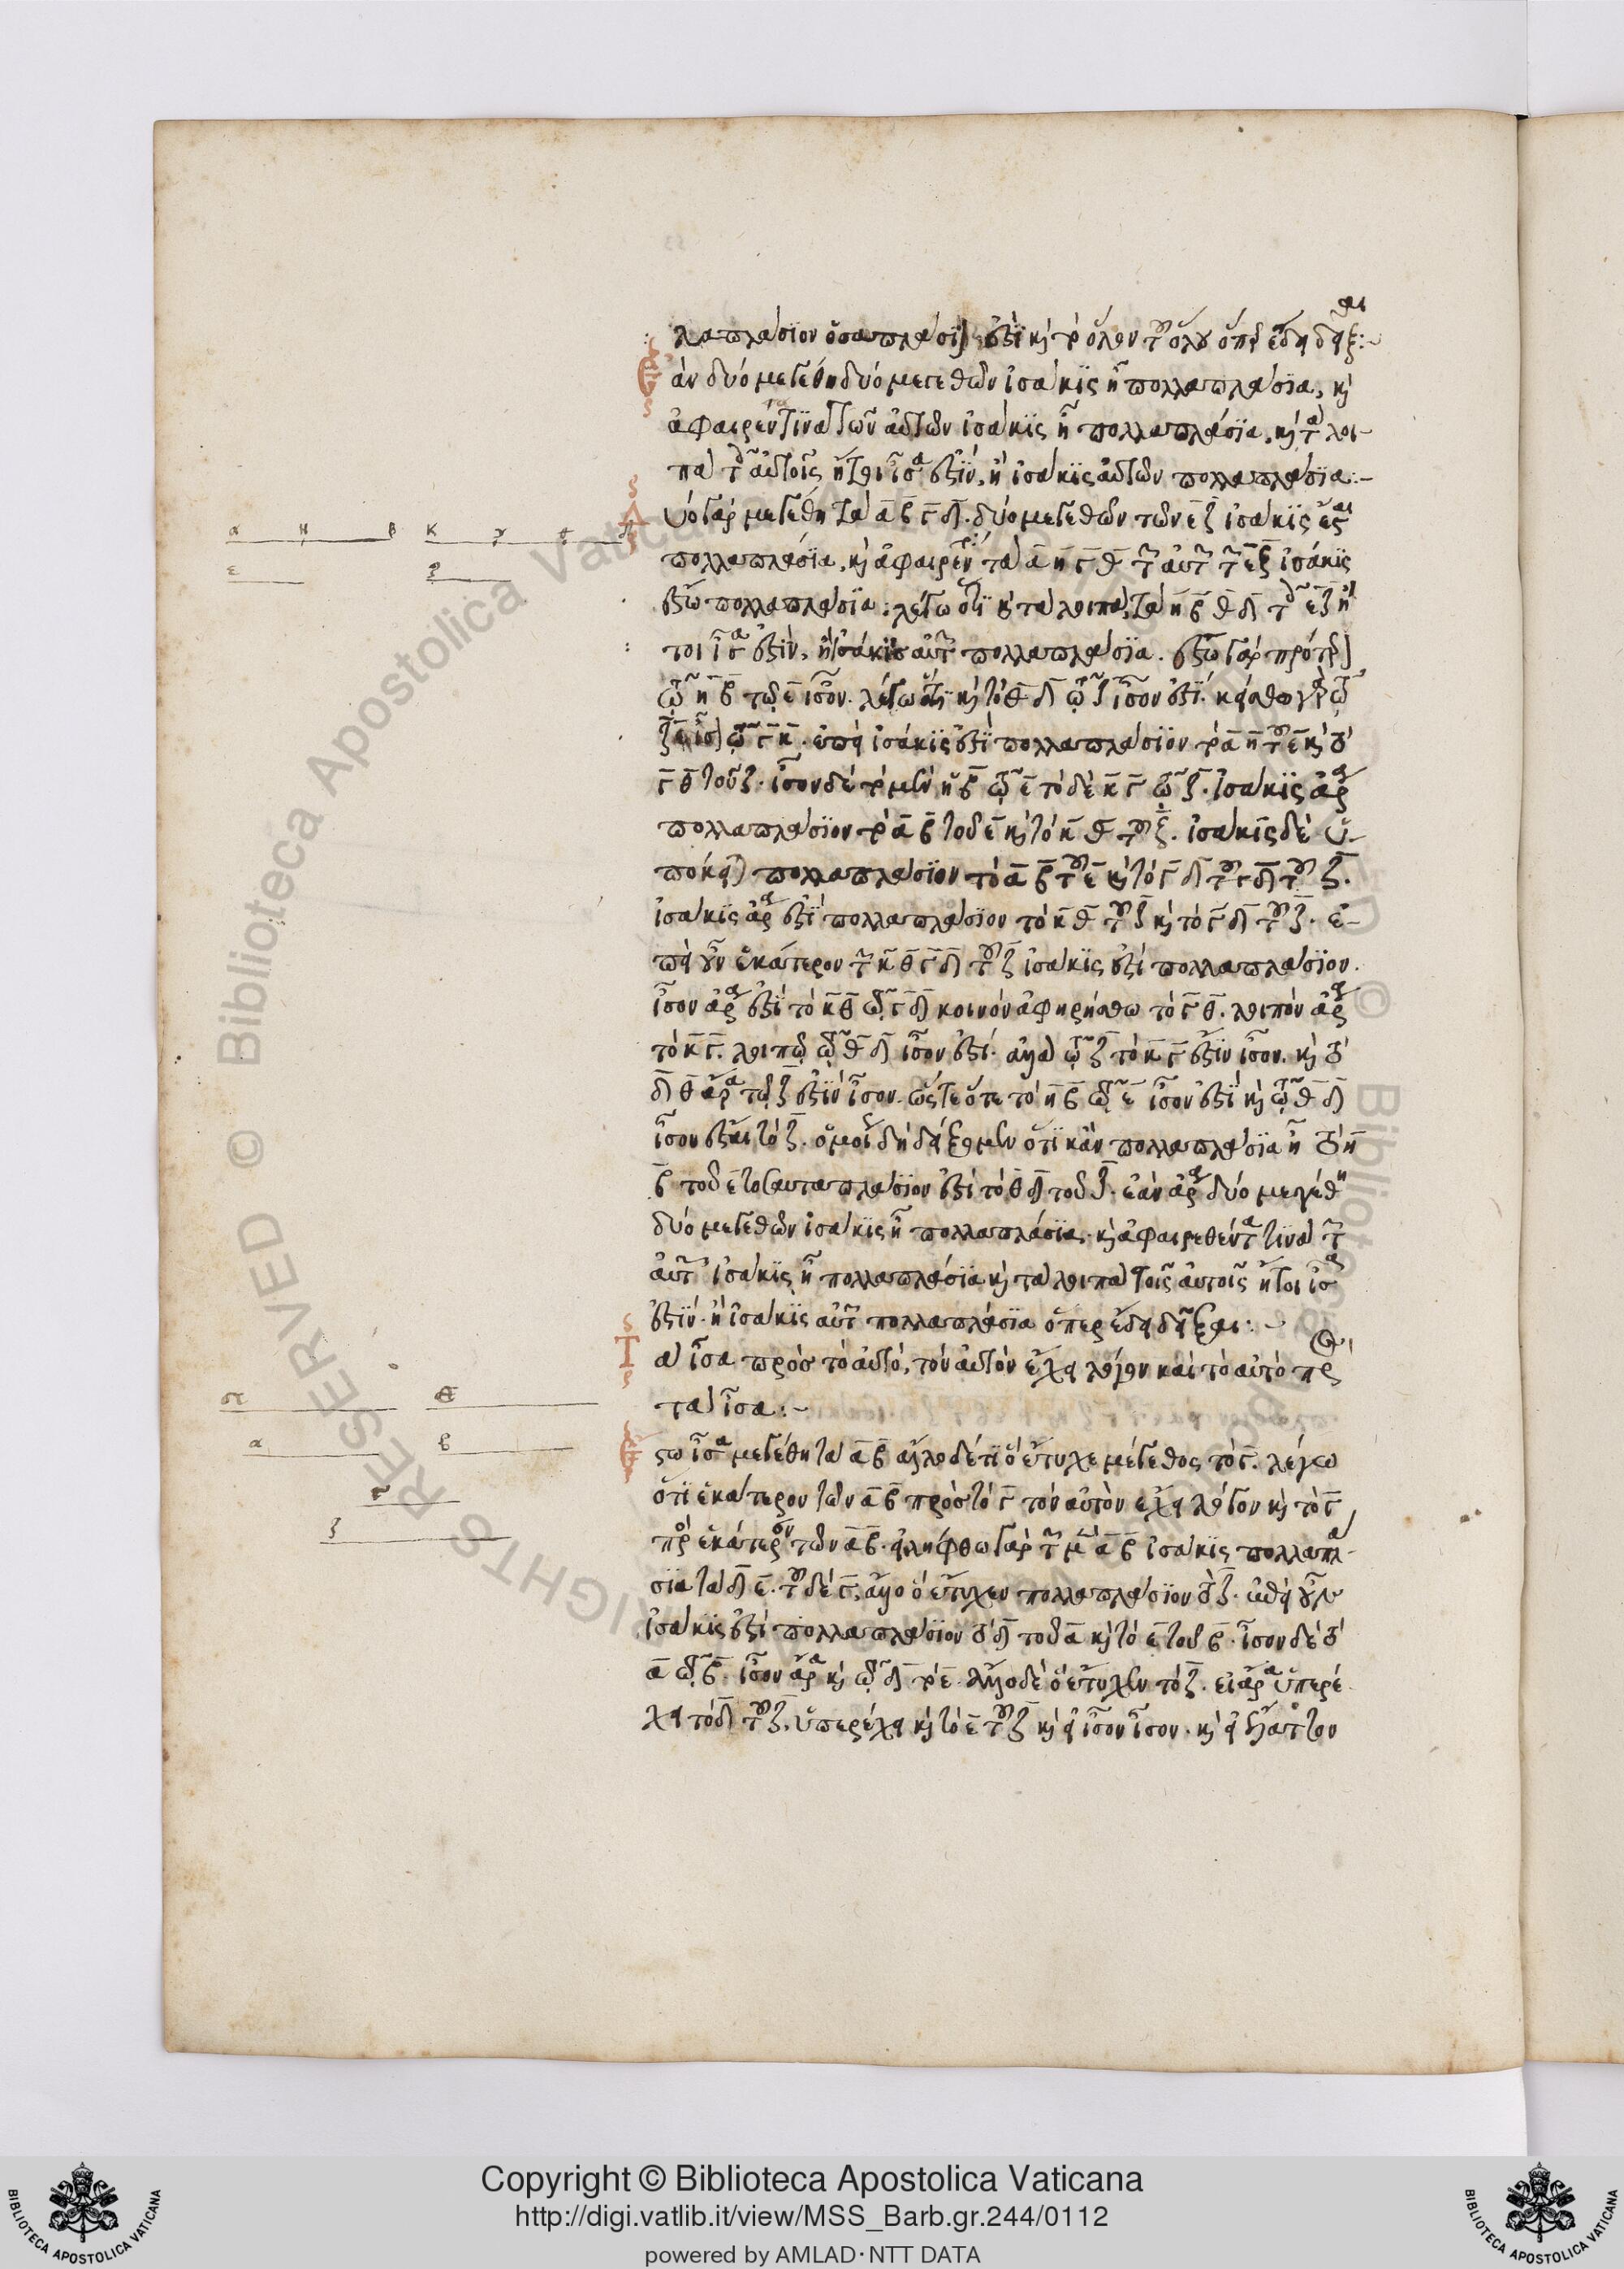 λαπλάσϊον ὁσαπλάσϊον ἐστὶ κ(αὶ) τὸ ὅλον τοῦ ὅλου ὅπερ ἔδει δεῖξαι:~
Ἐὰν δύο μεγέθη δύο μεγεθῶν ἰσάκϊς ἦ πολλαπλάσϊα, κ(αὶ)
ἀφαιρεθέντα τινὰ τῶν αὐτῶν ἰσάκϊς ἦ πολλαπλάσϊα, κ(αὶ) τὰ λοι-
πὰ τοῖς αὐτοῖς ἤτοι ἴσα ἐστῒν, ἢ ἰσάκϊς αὐτῶν πολλαπλάσϊα:-
Δύο γὰρ μεγέθη τὰ α β γ δ. δύο μεγεθῶν τῶν ε ζ ἰσάκϊς ἔσται
πολλαπλάσϊα, κ(αὶ) ἀφαιρεθέντα τὰ α η γ θ τῶν αὐτῶν τῶν ε ζ ἰσάκϊς
ἔστω πολλαπλάσϊα: λέγω ὅτϊ κ(αὶ) τὰ λοιπὰ, τὰ η β θ δ τοῖς ε ζ ἤ
τοι ἴσα ἐστῒν, ἢ ἰσάκις αὐτῶν πολλαπλάσϊα. ἔστω γὰρ πρότερον
τῷ η β τῷ ε ἴσον. λέγω ὅτϊ κ(αὶ) τὸ θ δ τῷ ζ ἴσον ἐστϊ. κείσθω γὰρ τῷ
ζ ἴσον τῷ γ κ. ἐπεὶ ἰσάκϊς ἐστῒ πολλαπλάσϊον τὸ α η τοῦ ε κ(αὶ) τὸ
γ θ τοῦ ζ. ἴσον δὲ τὸ μὲν η β τῷ ε τὸ δὲ κ γ τῷ ζ. ἰσάκϊς ἄρα
πολλαπλάσϊον τὸ α β τοῦ ε κ(αὶ) τὸ κ θ τοῦ ζ. ἰσάκϊς δὲ ὑ-
πόκειται πολλαπλάσϊον τὸ α β τοῦ ε κ(αὶ) τὸ γ δ τοῦ γ δ τοῦ ζ.
ἰσάκϊς ἄρα ἐστῒ πολλαπλάσϊον τὸ κ θ τοῦ ζ κ(αὶ) τὸ γ δ τοῦ ζ. ἐ-
πεὶ οὖν ἑκάτερον τῶν κ θ γ δ τοῦ ζ ἰσάκϊς ἐστὶ πολλαπλάσϊον.
ἴσον ἄρα ἐστῒ τὸ κ θ τῷ γ δ κοινὸν ἀφηρήσθω τὸ γ θ. λοιπὸν ἄρα
τὸ κ γ. λοιπῷ τῷ θ δ ἴσον ἐστϊ. ἀλλὰ τῷ ζ τὸ κ γ ἐστὶν ἴσον. κ(αὶ) τὸ
δ θ ἄρα τῷ ζ ἐστῒν ἴσον. ὥστε ὅτε τὸ η β τῷ ε ἴσον ἐστῒ κ(αὶ) τῷ θ δ
ἴσον ἔσται τὸ ζ. ὁμοίως δὴ δείξομεν ὅτϊ κἂν πολλαπλάσϊα ἦ τὸ η
β τοῦ ε τοσαυταπλάσϊον ἐστὶ τὸ θ δ τοῦ ζ. ἐὰν ἄρα δύο μεγέθη
δύο μεγεθῶν ἰσάκϊς ἦ πολλαπλάσϊα. κ(αὶ) ἀφαιρεθέντα τϊνὰ τῶν
αὐτῶν ἰσάκϊς ἦ πολλαπλάσϊα κ(αὶ) τὰ λοιπὰ τοῖς αὐτοῖς ἤτοι ἴσα
ἐστῒν. ἢ ἰσάκϊς αὐτῶν πολλαπλάσϊα ὅπερ ἔδει δεῖξαι:~
Τὰ ἴσα πρὸσ τὸ αὐτό, τὸν αὐτὸν ἔχει λόγον καὶ τὸ αὐτὸ πρὸς
τὰ ἴσα:~
Ἔστω ἴσα μεγέθη τὰ α β ἄλλο δέ τϊ ὃ ἔτυχε μέγεθος τὸ γ. λέγω
ὅτϊ ἑκάτερον τῶν α β πρὸς τὸ γ τὸν αὐτὸν ἔχει λόγον κ(αὶ) τὸ γ
πρὸς ἑκάτερον τῶν α β. εἰλήφθω γὰρ τῶν μὲν α β ἰσάκϊς πολλαπλά-
σϊα τὰ δ ε. τοῦ δὲ γ, ἄλλο ὃ ἔτυχεν πολλαπλάσϊον τὸ ζ. ἐπεὶ οὖν
ἰσάκϊς ἐστὶ πολλαπλάσϊον τὸ δ τοῦ α κ(αὶ) τὸ ε τοῦ β. ἴσον δὲ τὸ
α τῷ β. ἴσον ἄρα κ(αὶ) τῷ δ τὸ ε. ἄλλο δὲ ὃ ἔτυχεν τὸ ζ. εἰ ἄρα ὑπερέ-
χει τὸ δ τοῦ ζ, ὑπερέχει κ(αὶ) τὸ ε τοῦ ζ κ(αὶ) εἰ ἴσον ἴσον. κ(αὶ) εἰ ἔλαττον
α η β κ γ θ δ
ε ζ
δ ε
α β
γ
ζ
Copyright © Biblioteca Apostolica Vaticana
http://digi.vatlib.it/view/MSS_Barb.gr.244/0112
powered by AMLAD·NTT DATA
BIBLIOTECA APOSTOLICA VATICANA
BIBLIOTECA APOSTOLICA VATICANA